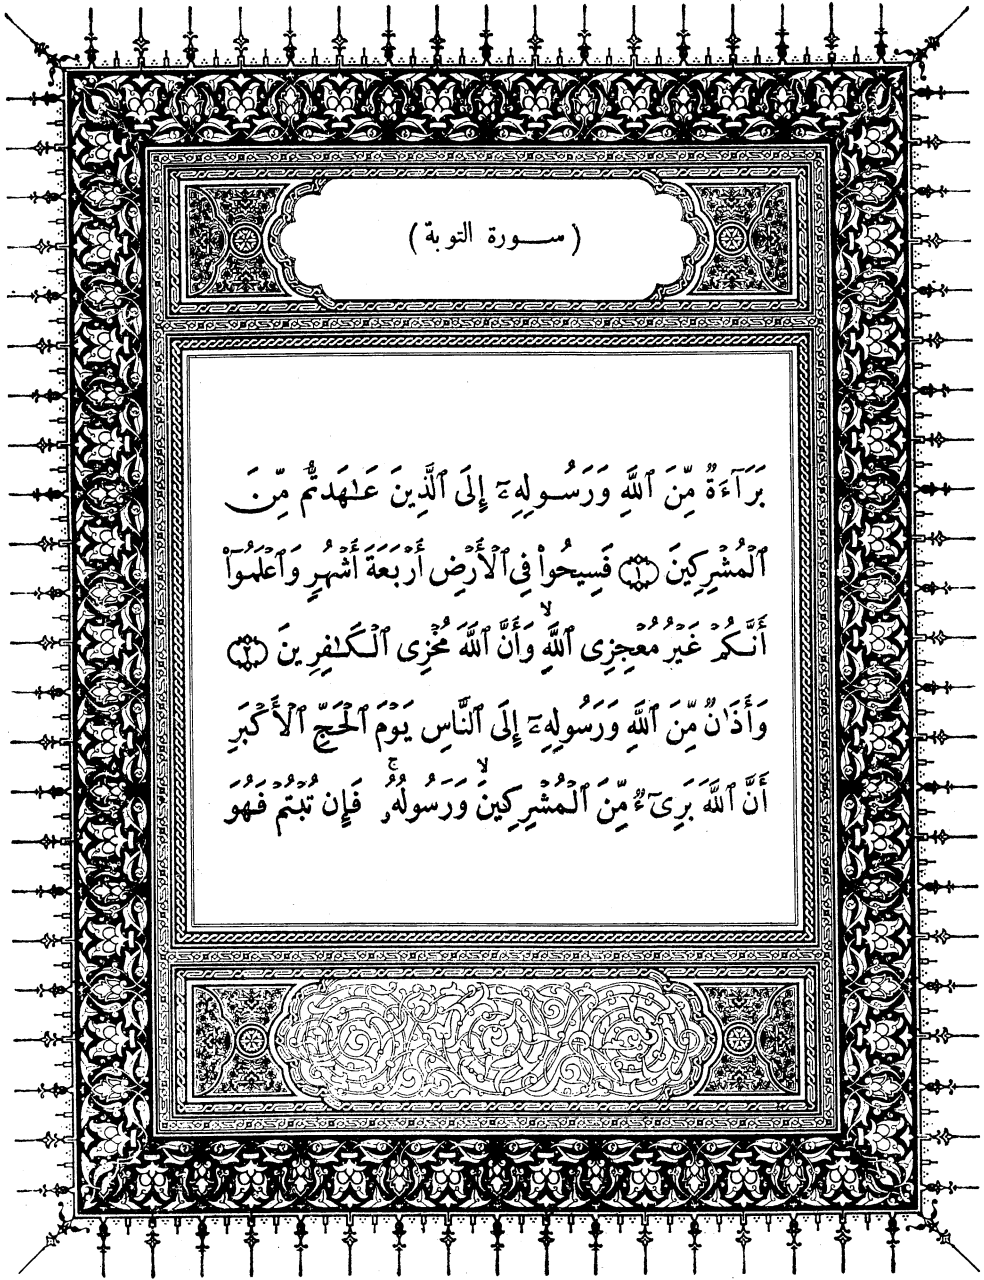 (سورة التوبة)
بَرَآءَةٌ مِّنَ ٱللَّهِ وَرَسُولِهِۦٓ إِلَى ٱلَّذِينَ عَـٰهَدتُّم مِّنَ
ٱلْمُشْرِكِينَ ۝١ فَسِيحُوا۟ فِى ٱلْأَرْضِ أَرْبَعَةَ أَشْهُرٍ وَٱعْلَمُوٓا۟
أَنَّكُمْ غَيْرُ مُعْجِزِى ٱللَّهِ ۙ وَأَنَّ ٱللَّهَ مُخْزِى ٱلْكَـٰفِرِينَ ۝٢
وَأَذَٰنٌ مِّنَ ٱللَّهِ وَرَسُولِهِۦٓ إِلَى ٱلنَّاسِ يَوْمَ ٱلْحَجِّ ٱلْأَكْبَرِ
أَنَّ ٱللَّهَ بَرِىٓءٌ مِّنَ ٱلْمُشْرِكِينَ ۙ وَرَسُولُهُۥ ۚ فَإِن تُبْتُمْ فَهُوَ